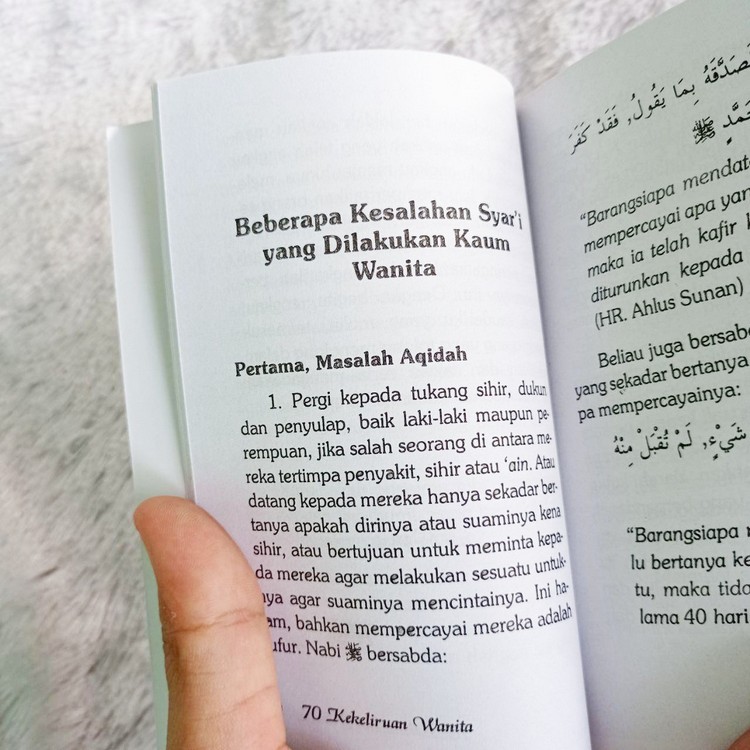 Beberapa Kesalahan Syar'i
yang Dilakukan Kaum
Wanita
Pertama, Masalah Aqidah
1. Pergi kepada tukang sihir, dukun
dan penyulap, baik laki-laki maupun pe-
rempuan, jika salah seorang di antara me-
reka tertimpa penyakit, sihir atau 'ain. Atau
datang kepada mereka hanya sekadar ber-
tanya apakah dirinya atau suaminya kena
sihir, atau bertujuan untuk meminta kepa-
da mereka agar melakukan sesuatu untuk-
nya agar suaminya mencintainya. Ini ha-
am, bahkan mempercayai mereka adalah
ufur. Nabi ﷺ bersabda:
70 Kekeliruan Wanita
بِمَا يَقُولُ, فَقَدْ كَفَرَ
ﷺ
"Barangsiapa mendat
mempercayai apa yan
maka ia telah kafir
diturunkan kepada
(HR. Ahlus Sunan)
Beliau juga bersab
yang sekadar bertanya
pa mempercayainya:
شَيْءٍ, لَمْ تُقْبَلْ مِنْهُ
"Barangsiapa
lu bertanya ke
tu, maka tida
lama 40 hari